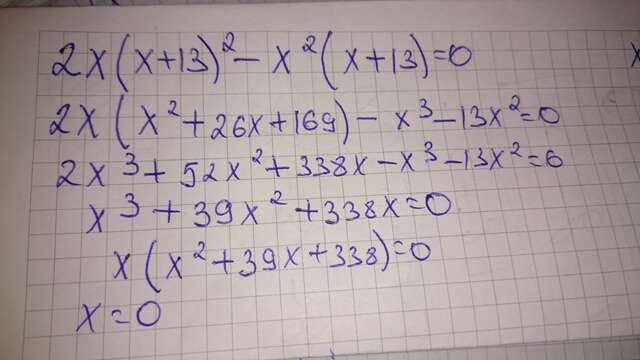 2x(x+13)²-x²(x+13)=0
2x(x²+26x+169)-x³-13x²=0
2x³+52x²+338x-x³-13x²=0
x³+39x²+338x=0
x(x²+39x+338)=0
x=0